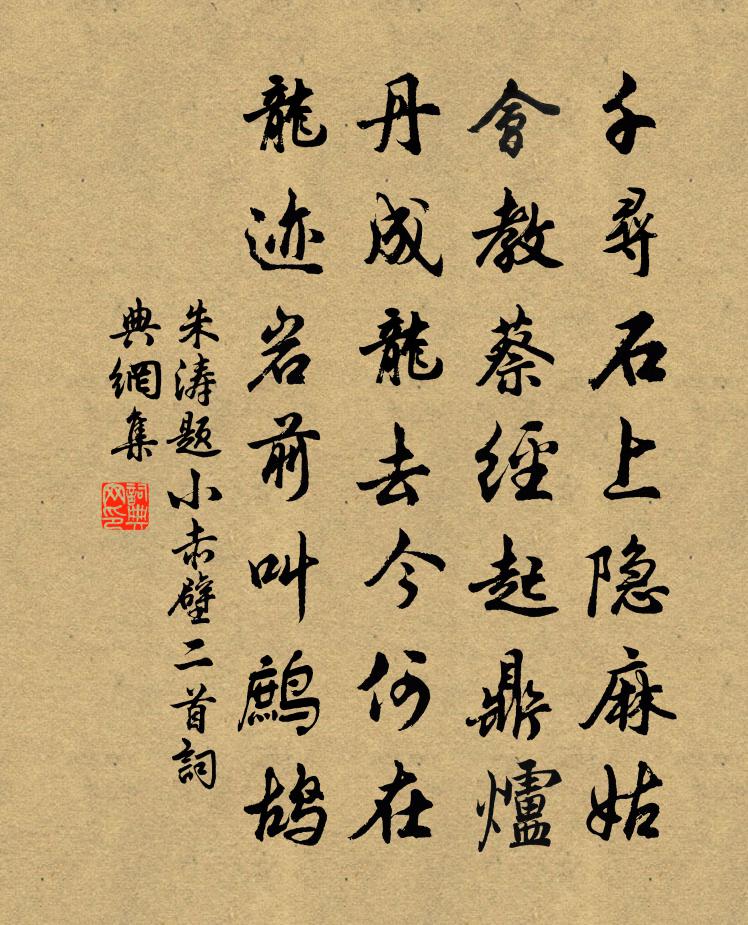 千尋石上隐麻姑
會教蔡經起鼎爐
丹成龍去今何在
龍迹岩前叫鷓鸪
朱涛題小赤壁二首詞
典網集
詞典网印